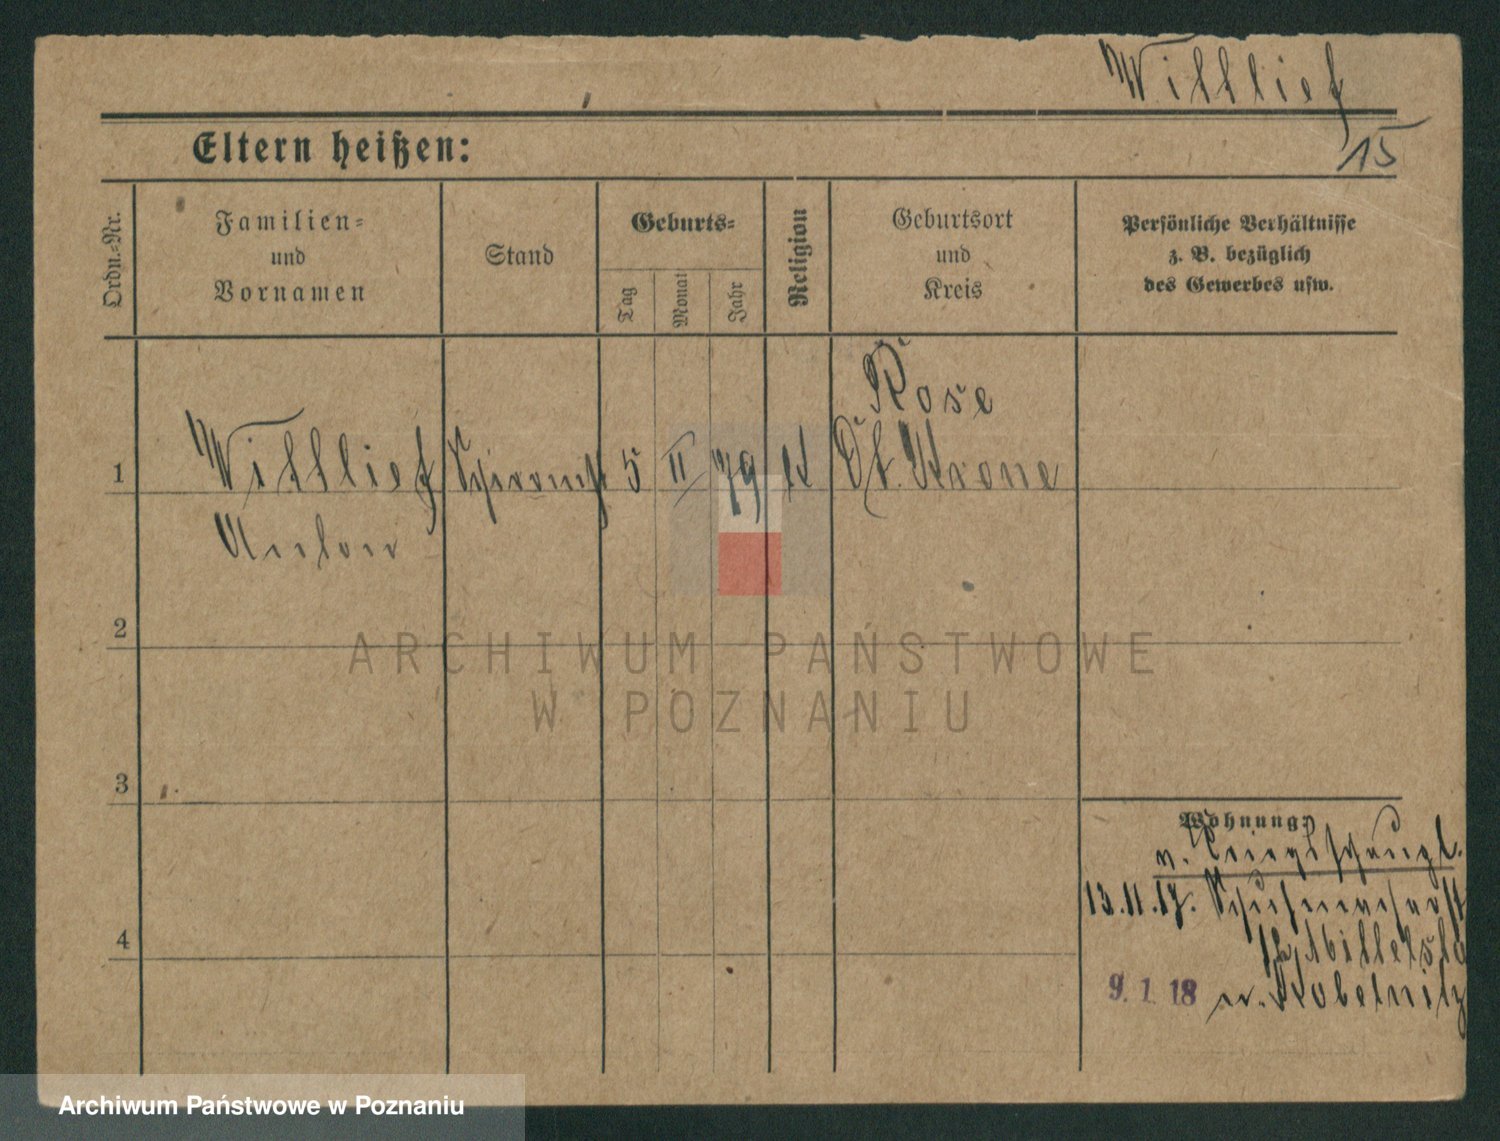 Wittlief
15
Eltern heißen:
Ordn.-Nr.
Familien-
und
Vornamen
Stand
Geburts-
Tag
Monat
Jahr
Religion
Geburtsort
und
Kreis
Persönliche Verhältnisse
z. B. bezüglich
des Gewerbes usw.
Rose
1 Wittlief 5 II 79 k Dt. Krone
Anton
2
3
4
ARCHIWUM PAŃSTWOWE
W POZNANIU
Wohnung:
v.
13.11.17.
9. 1. 18 n. Kobelnitz
Archiwum Państwowe w Poznaniu